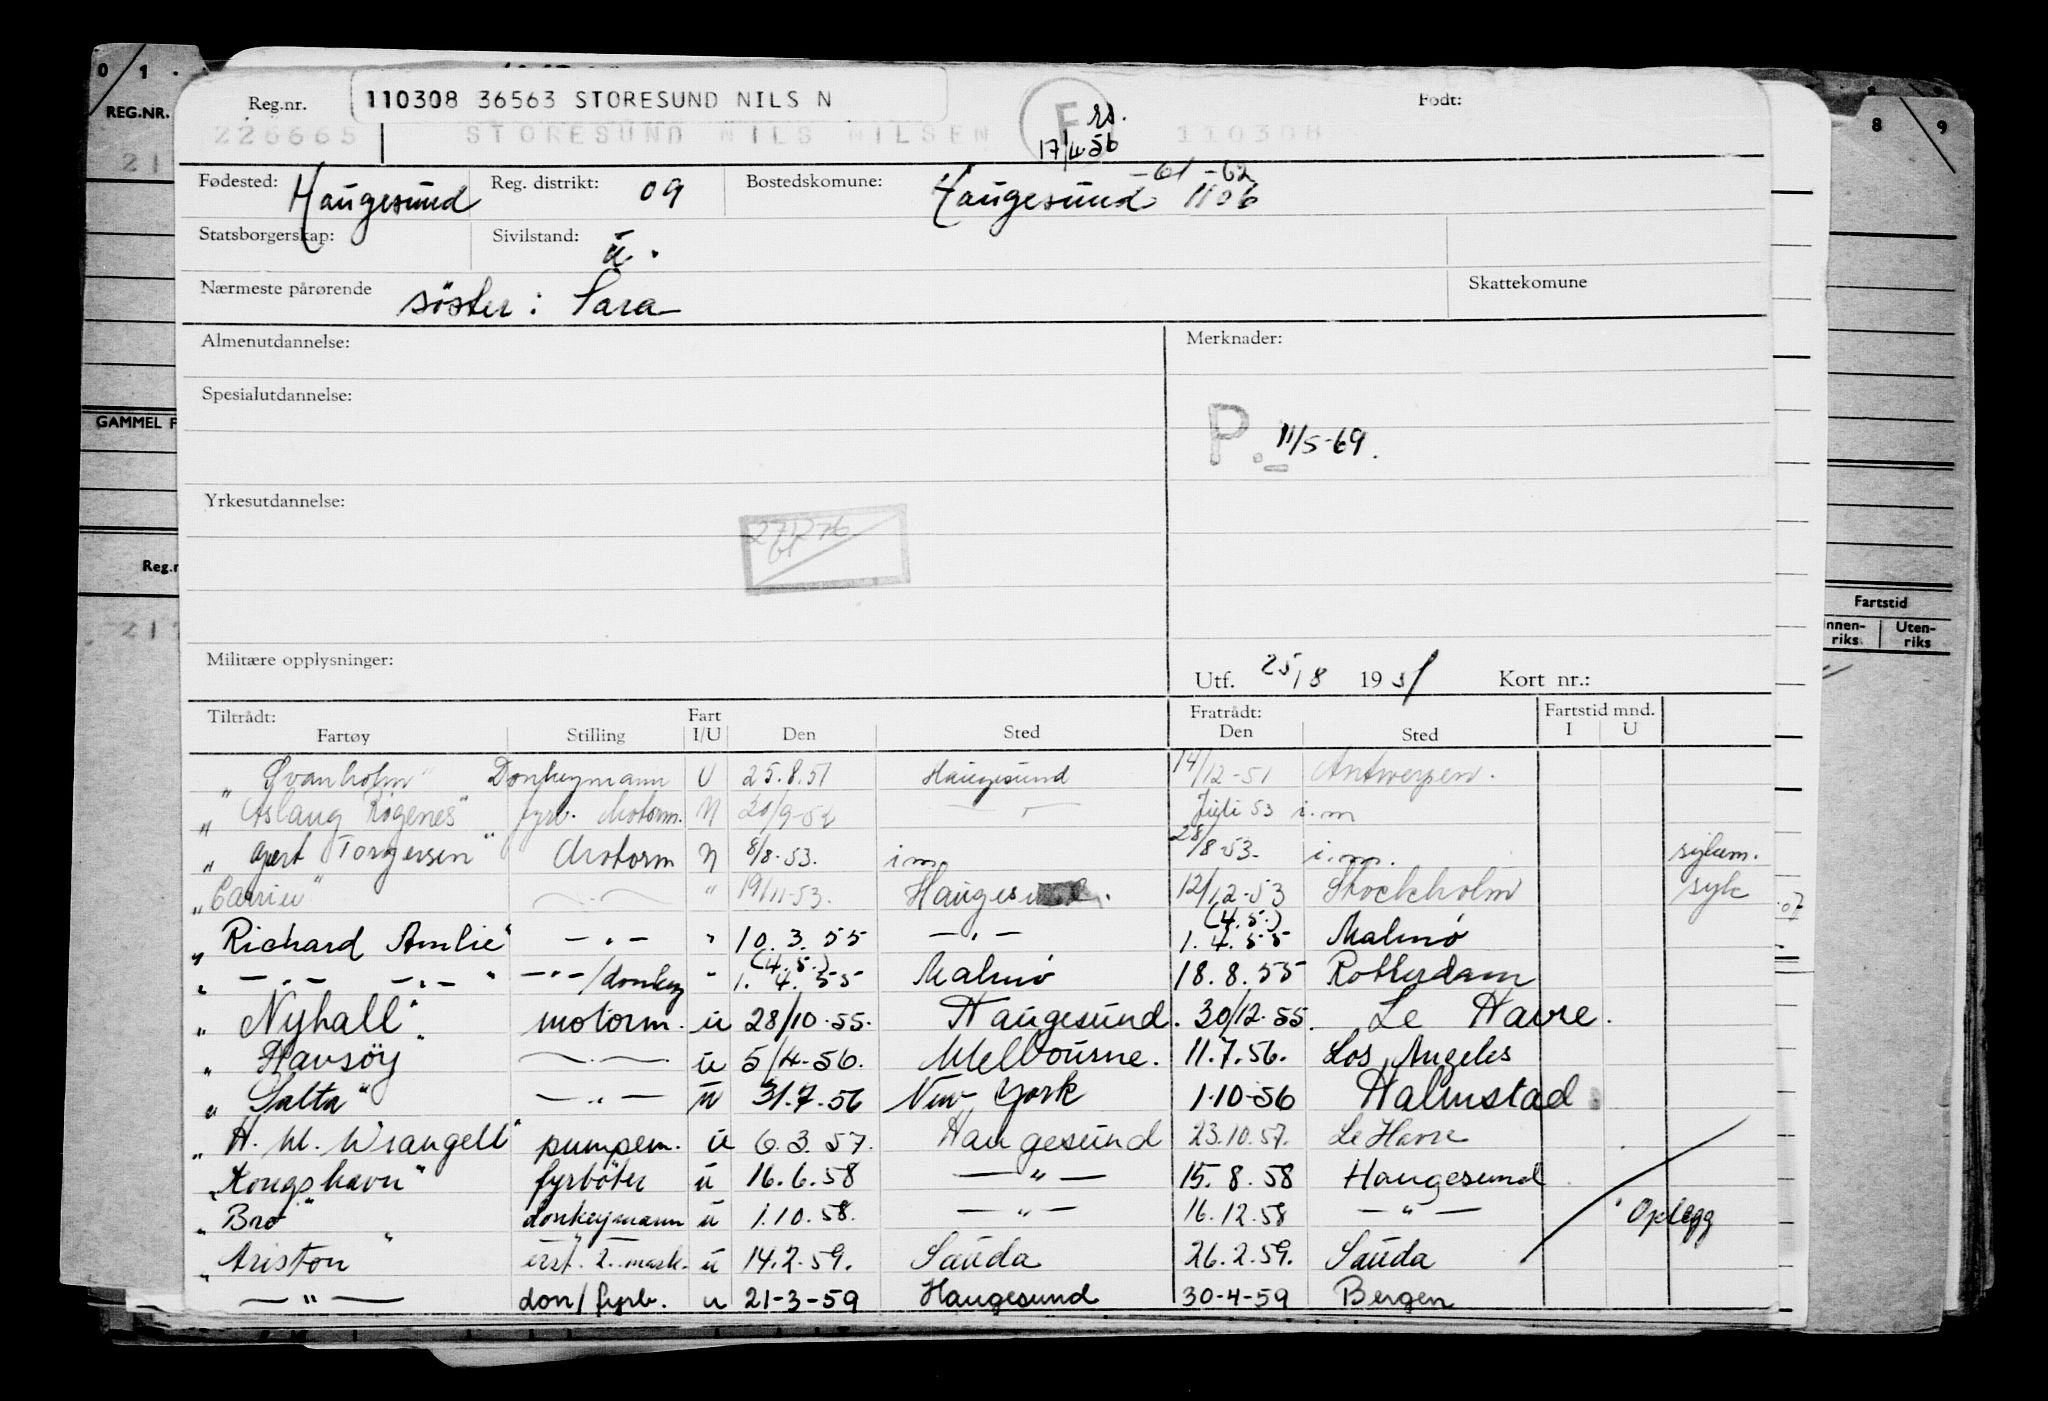 0 1 .
REG.NR.
Reg.nr. 110308 36563 STORESUND NILS N F rs. Født: 8 9
226665 STORESUND NILS NILSEN 17/4 56 110308 N
Fødested: Haugesund Reg. distrikt: 09 Bostedskomune: Haugesund 1106 -61 -62
Statsborgerskap: Sivilstand: u.
Nærmeste pårørende søster: Sara Skattekomune
Almenutdannelse: Merknader:
Spesialutdannelse:
GAMMEL F
P. 11/5-69.
Yrkesutdannelse:
Reg.n
Fartstid
Innen-riks Uten-riks
Militære opplysninger: Utf. 25/8 1951 Kort nr.:
Tiltrådt: Fart Fratrådt: Fartstid mnd.
Fartøy Stilling I/U Den Sted Den Sted I U
"Svanholm" Donkeymann U 25.8.51 Haugesund 14/12-51 Antwerpen.
"Aslaug Rogenes" fyrb. Motorm. N 20/9-52 — " — Juli 53 i.m
"Gert Torgersen" Motorm N 8/8-53. i.m 28/8-53. i.m. sykem.
"Carrier" — " — " 19/11-53. Haugesund. 12/12-53 Stockholm syk
"Richard Amlie" — " — " 10.3.55 — " — (4.5.) 1.4.55 Malmø
" — " — — " — " — " —/donkey " (4.5.) 1.4.55 Malmø 18.8.55 Rotterdam
"Nyhall" motorm. u 28/10-55. Haugesund. 30/12-55. Le Havre.
"Havsøy — " — u 5/4-56. Melbourne. 11.7.56. Los Angeles
"Salta" — " — u 31.7.56 New York 1-10-56 Halmstad
"H. M. Wrangell" pumpem. u 6.3.57. Haugesund 23.10.57. Le Havre
"Kongshavn" fyrbøter u 16.6.58 — " — 15.8.58 Haugesund
"Bro" donkeymann u 1.10.58. — " — 16.12.58 — " — Oplegg
"Ariston" erst. 2. mask. u 14.2.59. Sauda 26.2.59. Sauda
— " — don/fyrb. u 21-3-59 Haugesund 30-4-59 Bergen